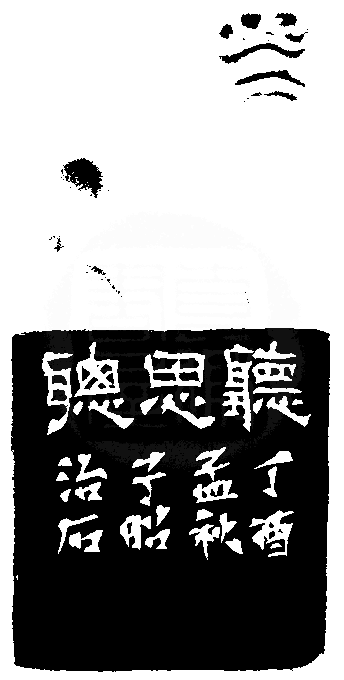 聽思聰
丁酉
孟秋
子昭
治石